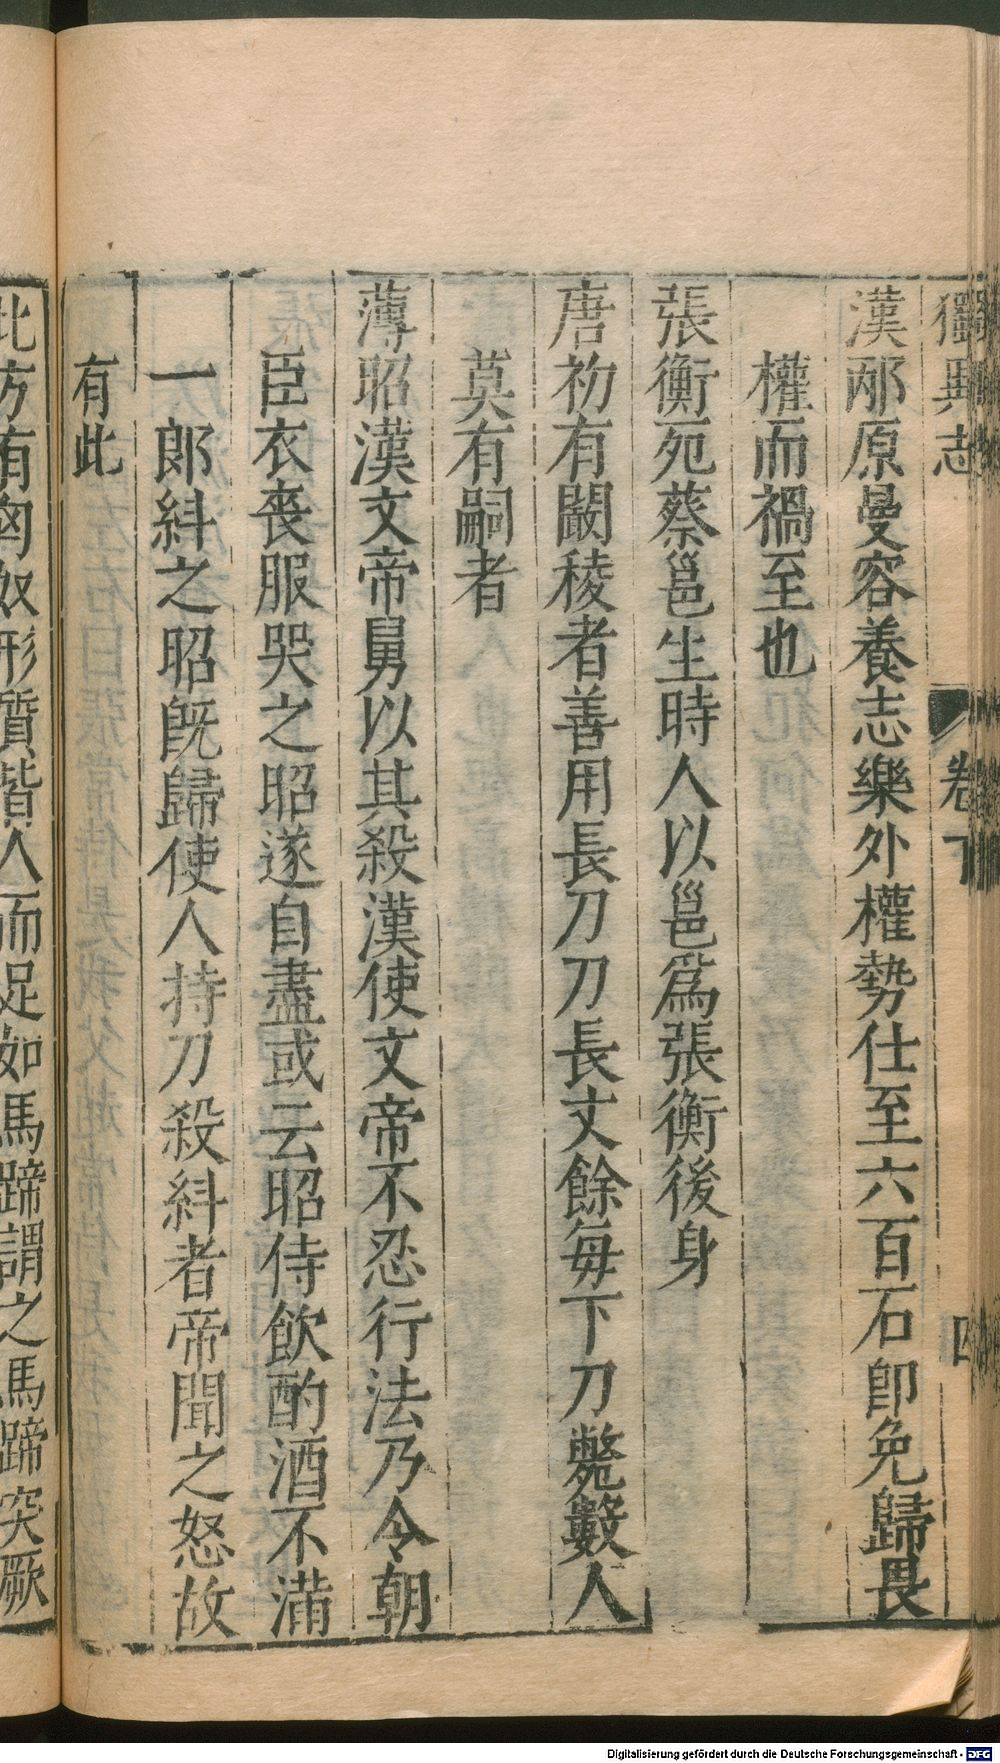 獨異志 卷下 四
漢邴原曼容養志樂外權勢仕至六百石卽免歸畏
權而禍至也
張衡死蔡邕生時人以邕爲張衡後身
唐初有闞稜者善用長刀刀長丈餘每下刀斃數人
莫有嗣者
薄昭漢文帝舅以其殺漢使文帝不忍行法乃令朝
臣衣喪服哭之昭遂自盡或云昭侍飲酌酒不滿
一郎糾之昭旣歸使人持刀殺糾者帝聞之怒故
有此
北方有匈奴形質皆人而足如馬蹄謂之馬蹄突厥
Digitalisierung gefördert durch die Deutsche Forschungsgemeinschaft - DFG